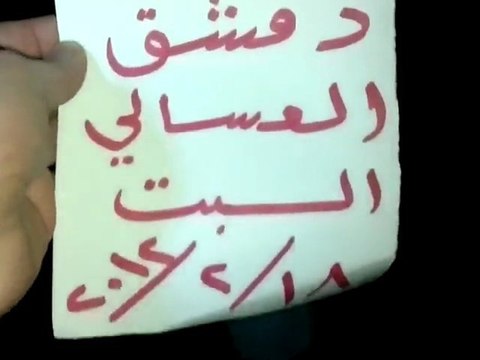 دمشق
العسالي
السبت
١٨/٢/٢٠١٢